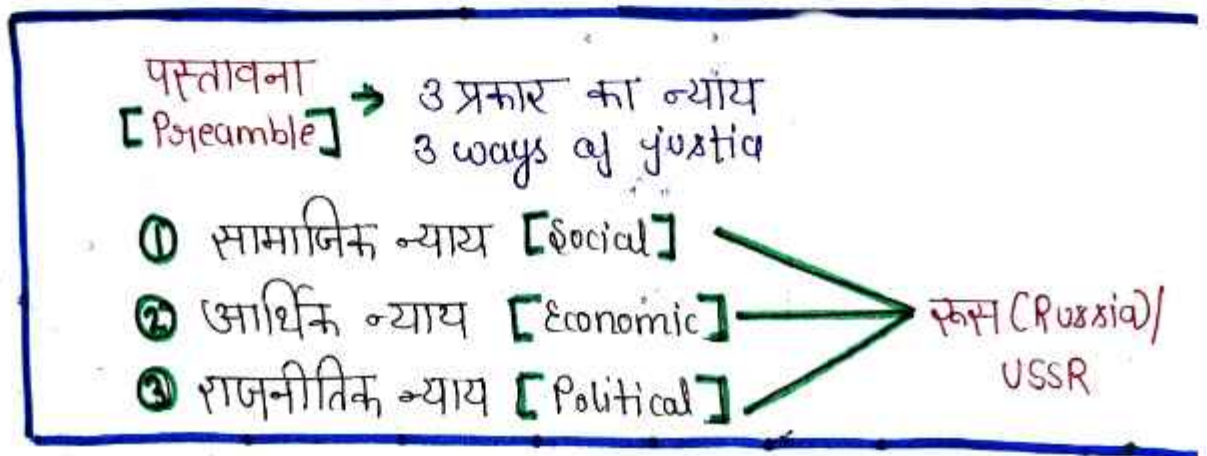 पस्तावना
[Preamble] → 3 प्रकार का न्याय
3 ways of justic
① सामाजिक न्याय [Social]
② आर्थिक न्याय [Economic]
③ राजनीतिक न्याय [Political]
रूस (Russia)/
USSR